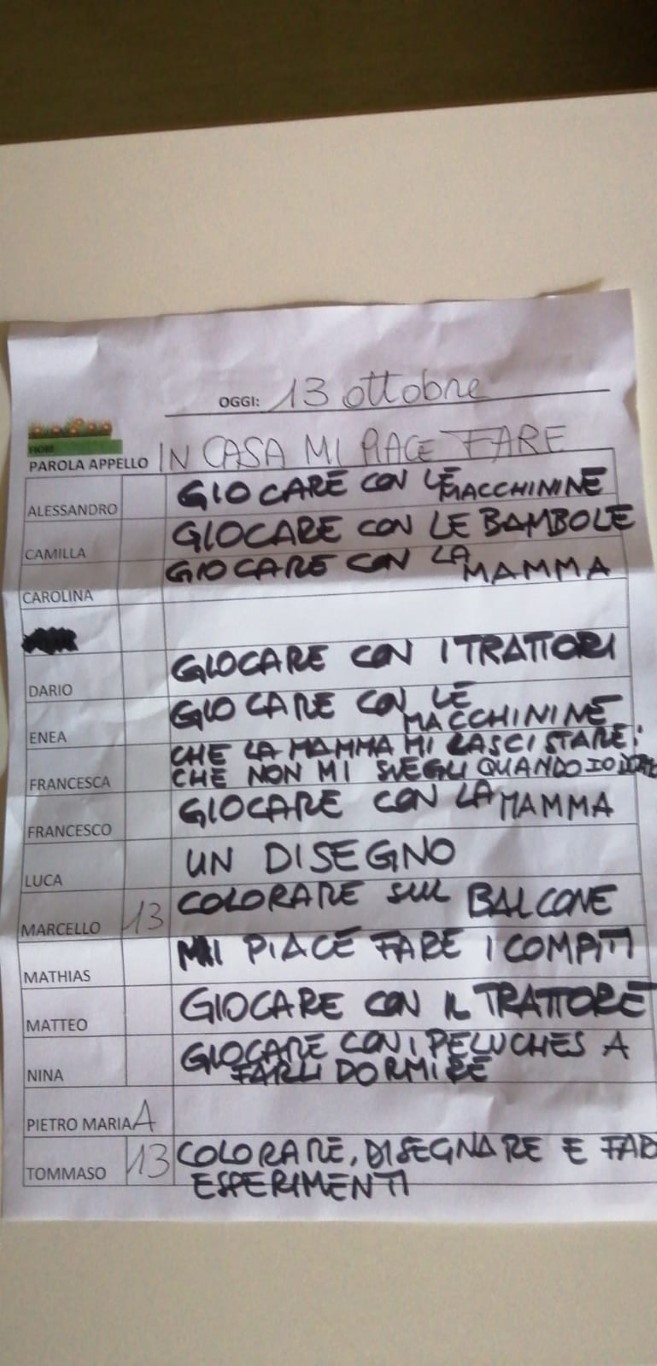 OGGI: 13 ottobre
PAROLA APPELLO IN CASA MI PIACE FARE
ALESSANDRO GIOCARE CON LE MACCHININE
CAMILLA GIOCARE CON LE BAMBOLE
CAROLINA GIOCARE CON LA MAMMA
DARIO GIOCARE CON I TRATTORI
ENEA GIOCARE CON LE MACCHININE
FRANCESCA CHE LA MAMMA MI LASCI STARE:
CHE NON MI SVEGLI QUANDO IO
FRANCESCO GIOCARE CON LA MAMMA
LUCA UN DISEGNO
MARCELLO 13 COLORARE SUL BALCONE
MATHIAS MI PIACE FARE I COMPITI
MATTEO GIOCARE CON IL TRATTORE
NINA GIOCARE CON I PELUCHES A
FARLI DORMIRE
PIETRO MARIA A
TOMMASO 13 COLORARE, DISEGNARE E FAR
ESPERIMENTI